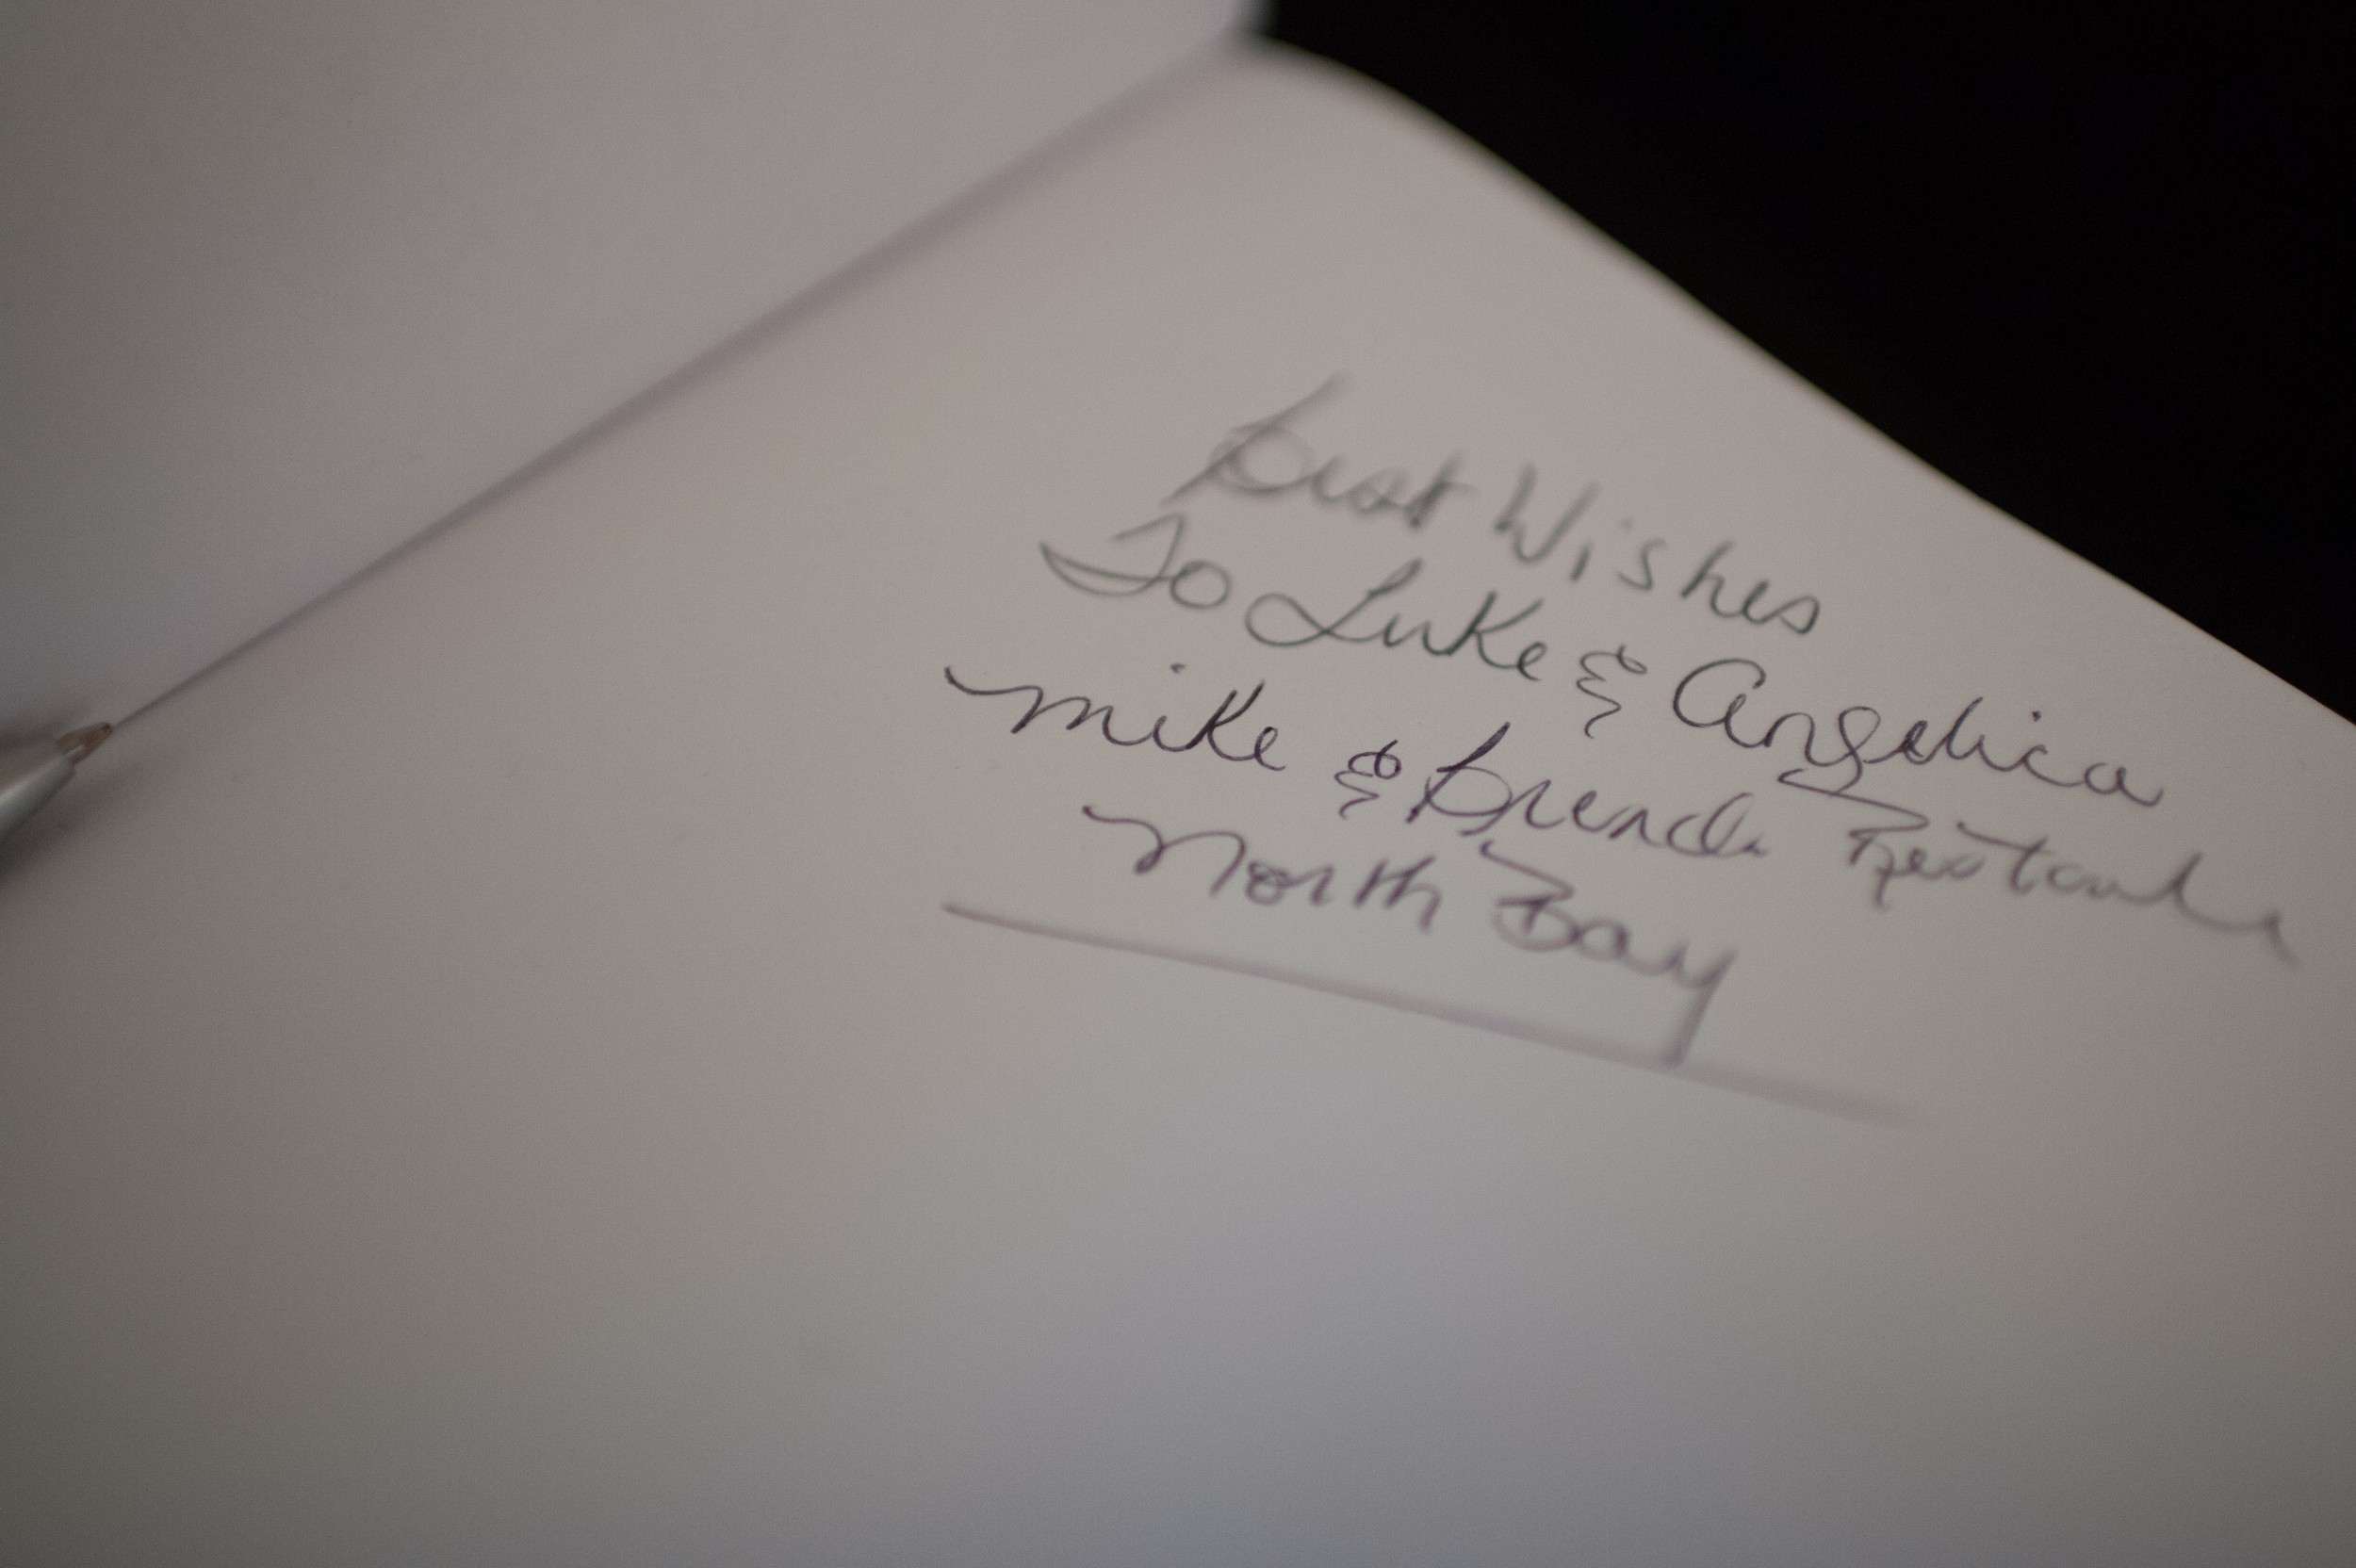 Best Wishes
To Luke & Angelica
Mike & Brenda
North Bay